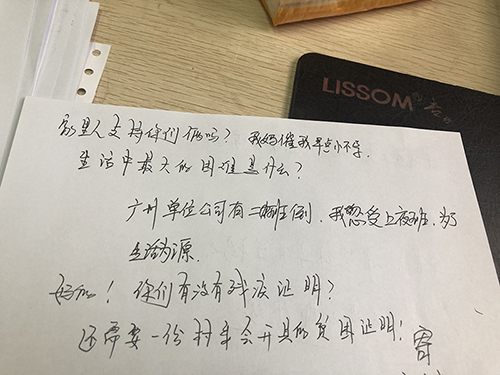 LISSOM
家里人支持你们俩吗？我妈催我早点
生活中最大的困难是什么？
广州单位公司有二班倒，我忍受上夜班，为了
生活为源。
好的！你们有没有残疾证明？
还需要一份村委会开具的贫困证明！寄